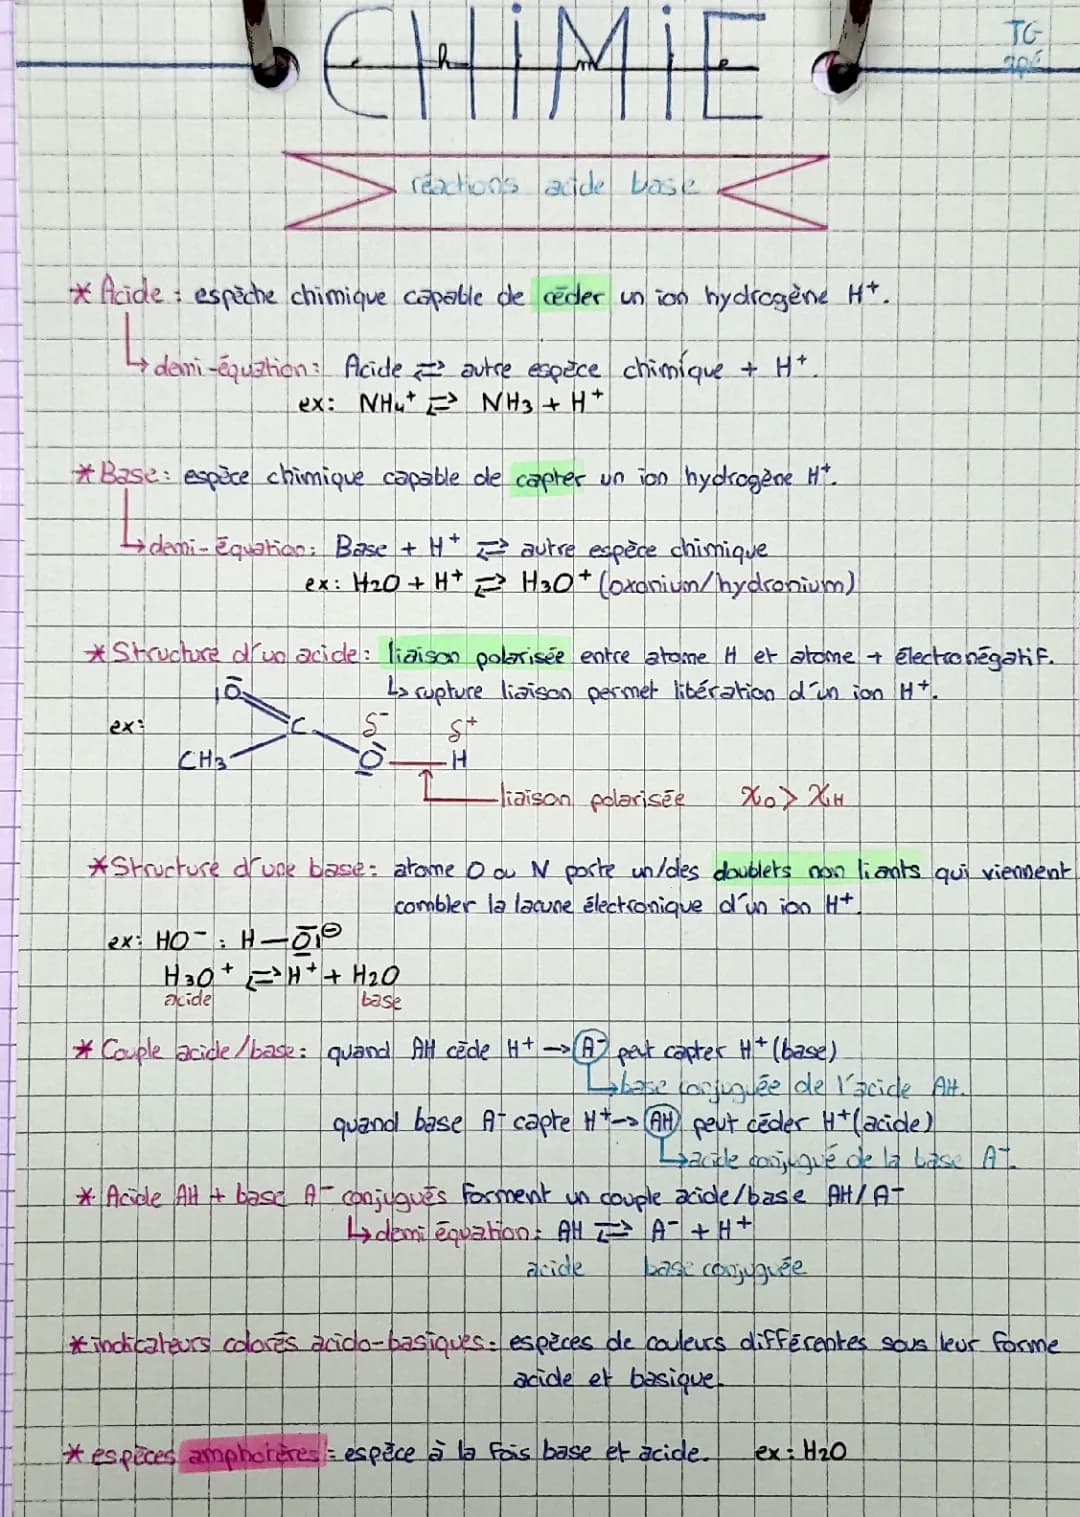 CHiMiE
TG
spé
réactions acide base
* Acide : espèche chimique capable de céder un ion hydrogène H⁺.
↳ demi-équation : Acide ⇄ autre espèce chimique + H⁺.
ex : NH₄⁺ ⇄ NH₃ + H⁺
* Base : espèce chimique capable de capter un ion hydrogène H⁺.
↳ demi-équation : Base + H⁺ ⇄ autre espèce chimique
ex : H₂O + H⁺ ⇄ H₃O⁺ (oxonium/hydronium)
* Structure d'un acide : liaison polarisée entre atome H et atome + électronégatif.
↳ rupture liaison permet libération d'un ion H⁺.
ex :
O
C
δ⁻ δ⁺
CH₃ O — H
liaison polarisée χO > χH
* Structure d'une base : atome O ou N porte un/des doublets non liants qui viennent
combler la lacune électronique d'un ion H⁺.
ex : HO⁻ : H—O⊖
H₃O⁺ ⇄ H⁺ + H₂O
acide base
* Couple acide/base : quand AH cède H⁺ → A⁻ peut capter H⁺ (base)
↳ base conjuguée de l'acide AH.
quand base A⁻ capte H⁺ → AH peut céder H⁺ (acide)
↳ acide conjugué de la base A⁻.
* Acide AH + base A⁻ conjugués forment un couple acide/base AH/A⁻
↳ demi équation : AH ⇄ A⁻ + H⁺
acide base conjuguée
* indicateurs colorés acido-basiques : espèces de couleurs différentes sous leur forme
acide et basique.
* espèces amphotères : espèce à la fois base et acide. ex : H₂O